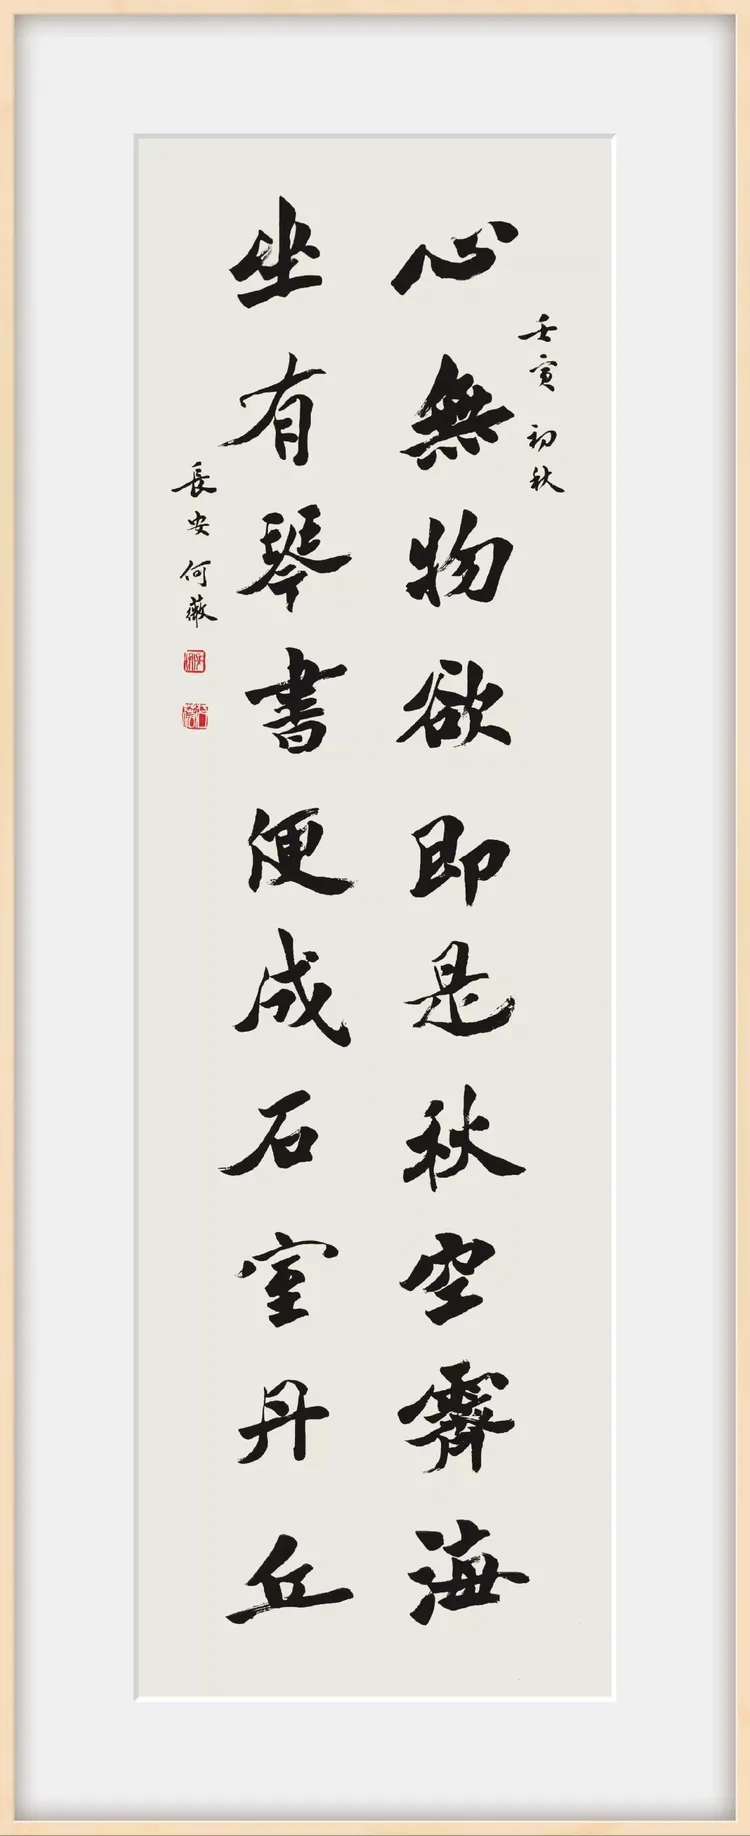 壬寅初秋
心無物欲即是秋空霽海
坐有琴書便成石室丹丘
長安何薇